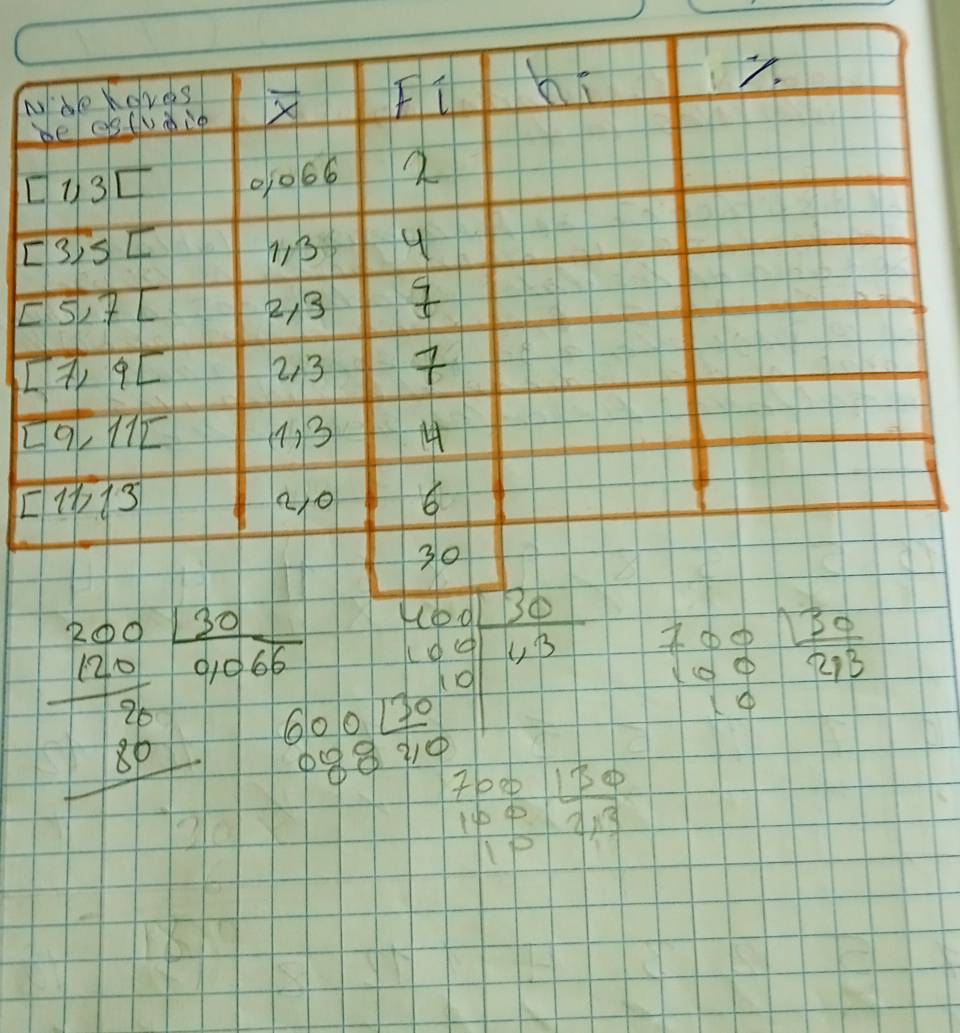 N° de horas x̄ Fi hi %
de estudio
[1,3[ 0,066 2
[3,5[ 1,3 4
[5,7[ 2,3 7
[7,9[ 2,3 7
[9,11[ 1,3 4
[11,13 2,0 6
30
200 30 400 30 700 30
120 0,066 100 1,3 100 2,3
20 10 10
80 600 30
000 2,0
700 30
100 2,3
10